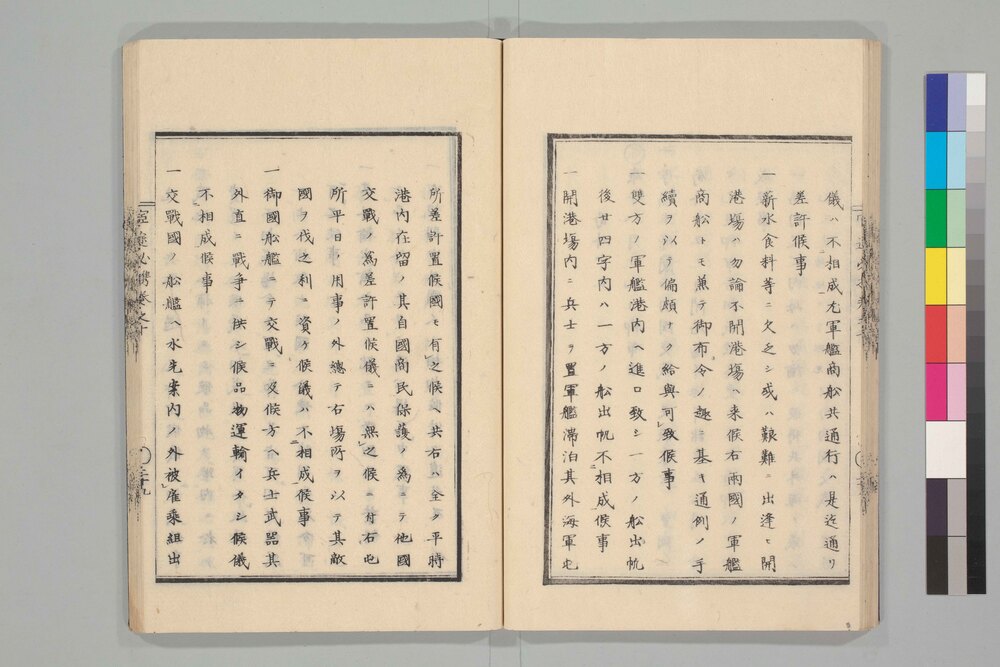 儀ハ不相成尤軍艦商舩共通行ハ是迄通リ
差許候事
一薪水食料等ニ欠乏シ或ハ艱難ニ出逢ヒ開
港場ハ勿論不開港場ヘ来候右両國ノ軍艦
商舩トモ兼テ御布令ノ趣ニ基キ通例ノ手
續ヲ以テ偏頗ナク給與可致候事
一雙方ノ軍艦港内ヘ進口致シ一方ノ舩出帆
後廿四字内ハ一方ノ舩出帆不相成候事
一開港場内ニ兵士ヲ置軍艦滞泊其外海軍屯
所差許置候國モ有之候ヘ共右ハ全ク平時
港内在留ノ其自國商民保護ノ為ニテ他國
交戰ノ為差許置候儀ニハ無之候ニ付右屯
所平日ノ用事ノ外總テ右場所ヲ以テ其敵
國ヲ伐之利ニ資ケ候儀ハ不相成候事
一御國舩艦ニテ交戰ニ及候方ヘ兵士武器其
外直ニ戰争ニ供シ候品物運輸イタシ候儀
不相成候事
一交戰國ノ舩艦ヘ水先案内ノ外被雇乗組出